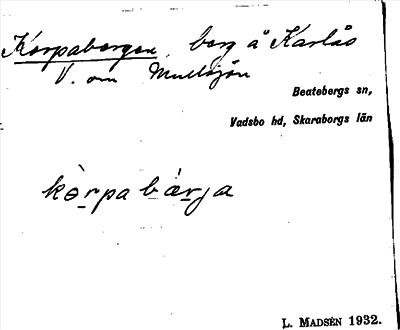 Korpabergen, berg å Karlås
V. om Mullsjön
Beatebergs sn,
Vadsbo hd, Skaraborgs län
kòrpabàrja
L. MADSÉN 1932.